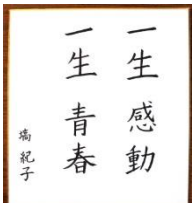 一生 感動
一生 青春
塙 紀子